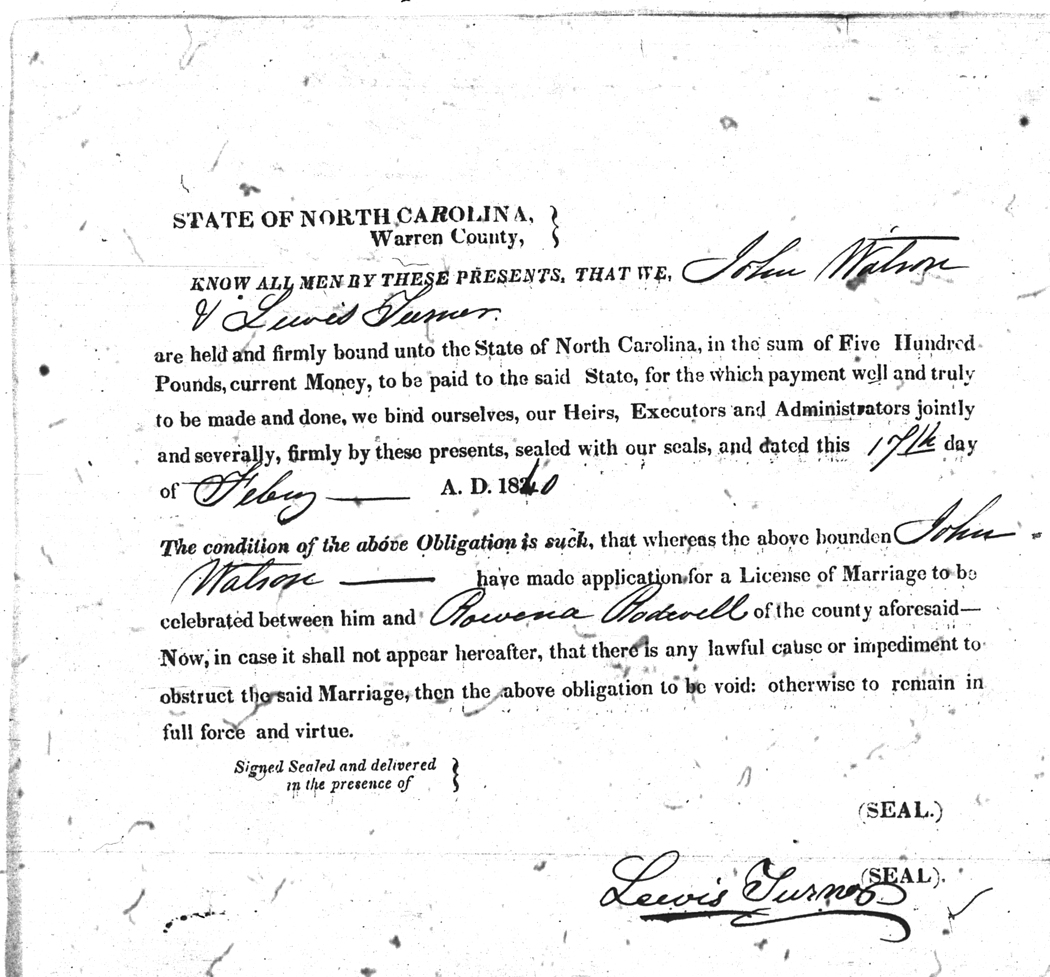 STATE OF NORTH CAROLINA,
Warren County,
KNOW ALL MEN BY THESE PRESENTS, THAT WE, John Watson
& Lewis Turner.
are held and firmly bound unto the State of North Carolina, in the sum of Five Hundred
Pounds, current Money, to be paid to the said State, for the which payment well and truly
to be made and done, we bind ourselves, our Heirs, Executors and Administrators jointly
and severally, firmly by these presents, sealed with our seals, and dated this 17th day
of Febuy A. D. 1840
The condition of the above Obligation is such, that whereas the above bounden John
Watson have made application for a License of Marriage to be
celebrated between him and Rowena Rodwell of the county aforesaid—
Now, in case it shall not appear hereafter, that there is any lawful cause or impediment to
obstruct the said Marriage, then the above obligation to be void: otherwise to remain in
full force and virtue.
Signed Sealed and delivered
in the presence of
(SEAL.)
Lewis Turner (SEAL).